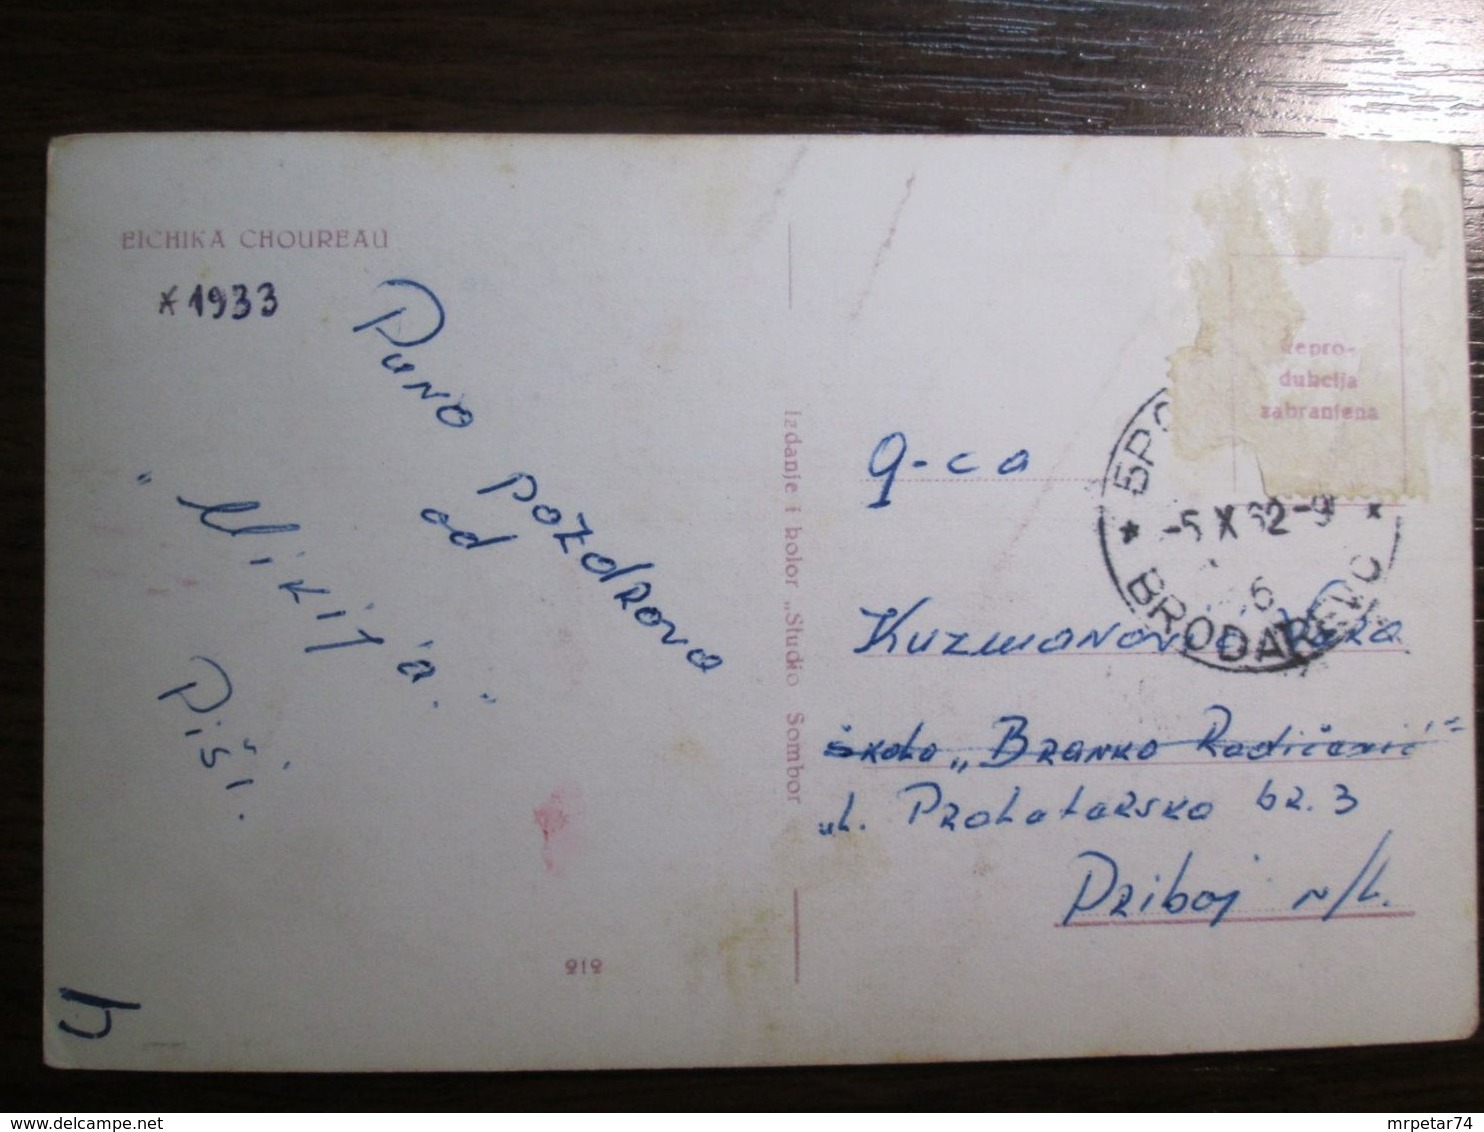 EICHIKA CHOUREAU
* 1933
Puno pozdrova
od
"Mikija".
Piši.
212
Izdanje i kolor „Studio Sombor
Repro-
dukcija
zabranjena
БРО
-5 X 62-9
6
BRODAREVO
g-ca
Kuzmanović
škola „Branko Radičević"
ul. Proletarska br. 3
Priboj n/L.
4
mrpetar74